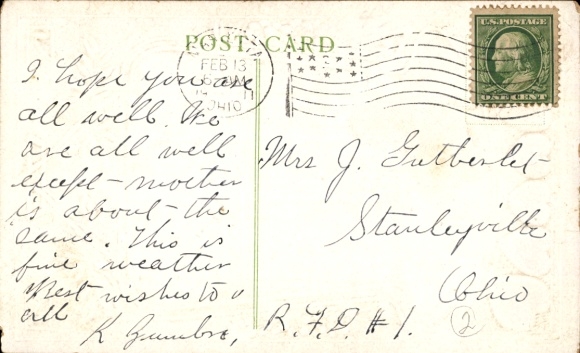 POST CARD
U.S. POSTAGE
ONE CENT
FEB 13
OHIO
I hope you are
all well. We
are all well
except mother
is about the
same. This is
fine weather
Best wishes to
all
K
Mrs J. Gutberlet
Stanleyville
Ohio
R.F.D. #1.
2